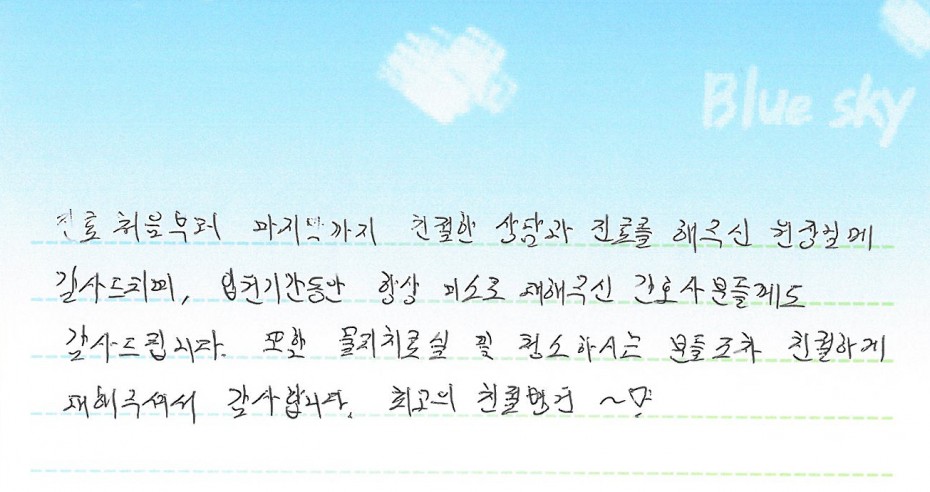 Blue sky
진료 처음부터 마지막까지 친절한 상담과 진료를 해주신 원장님께
감사드리며, 입원기간동안 항상 미소로 대해주신 간호사분들께도
감사드립니다. 또한 물리치료실 및 청소하시는 분들조차 친절하게
대해주셔서 감사합니다. 최고의 친절병원 ~♡